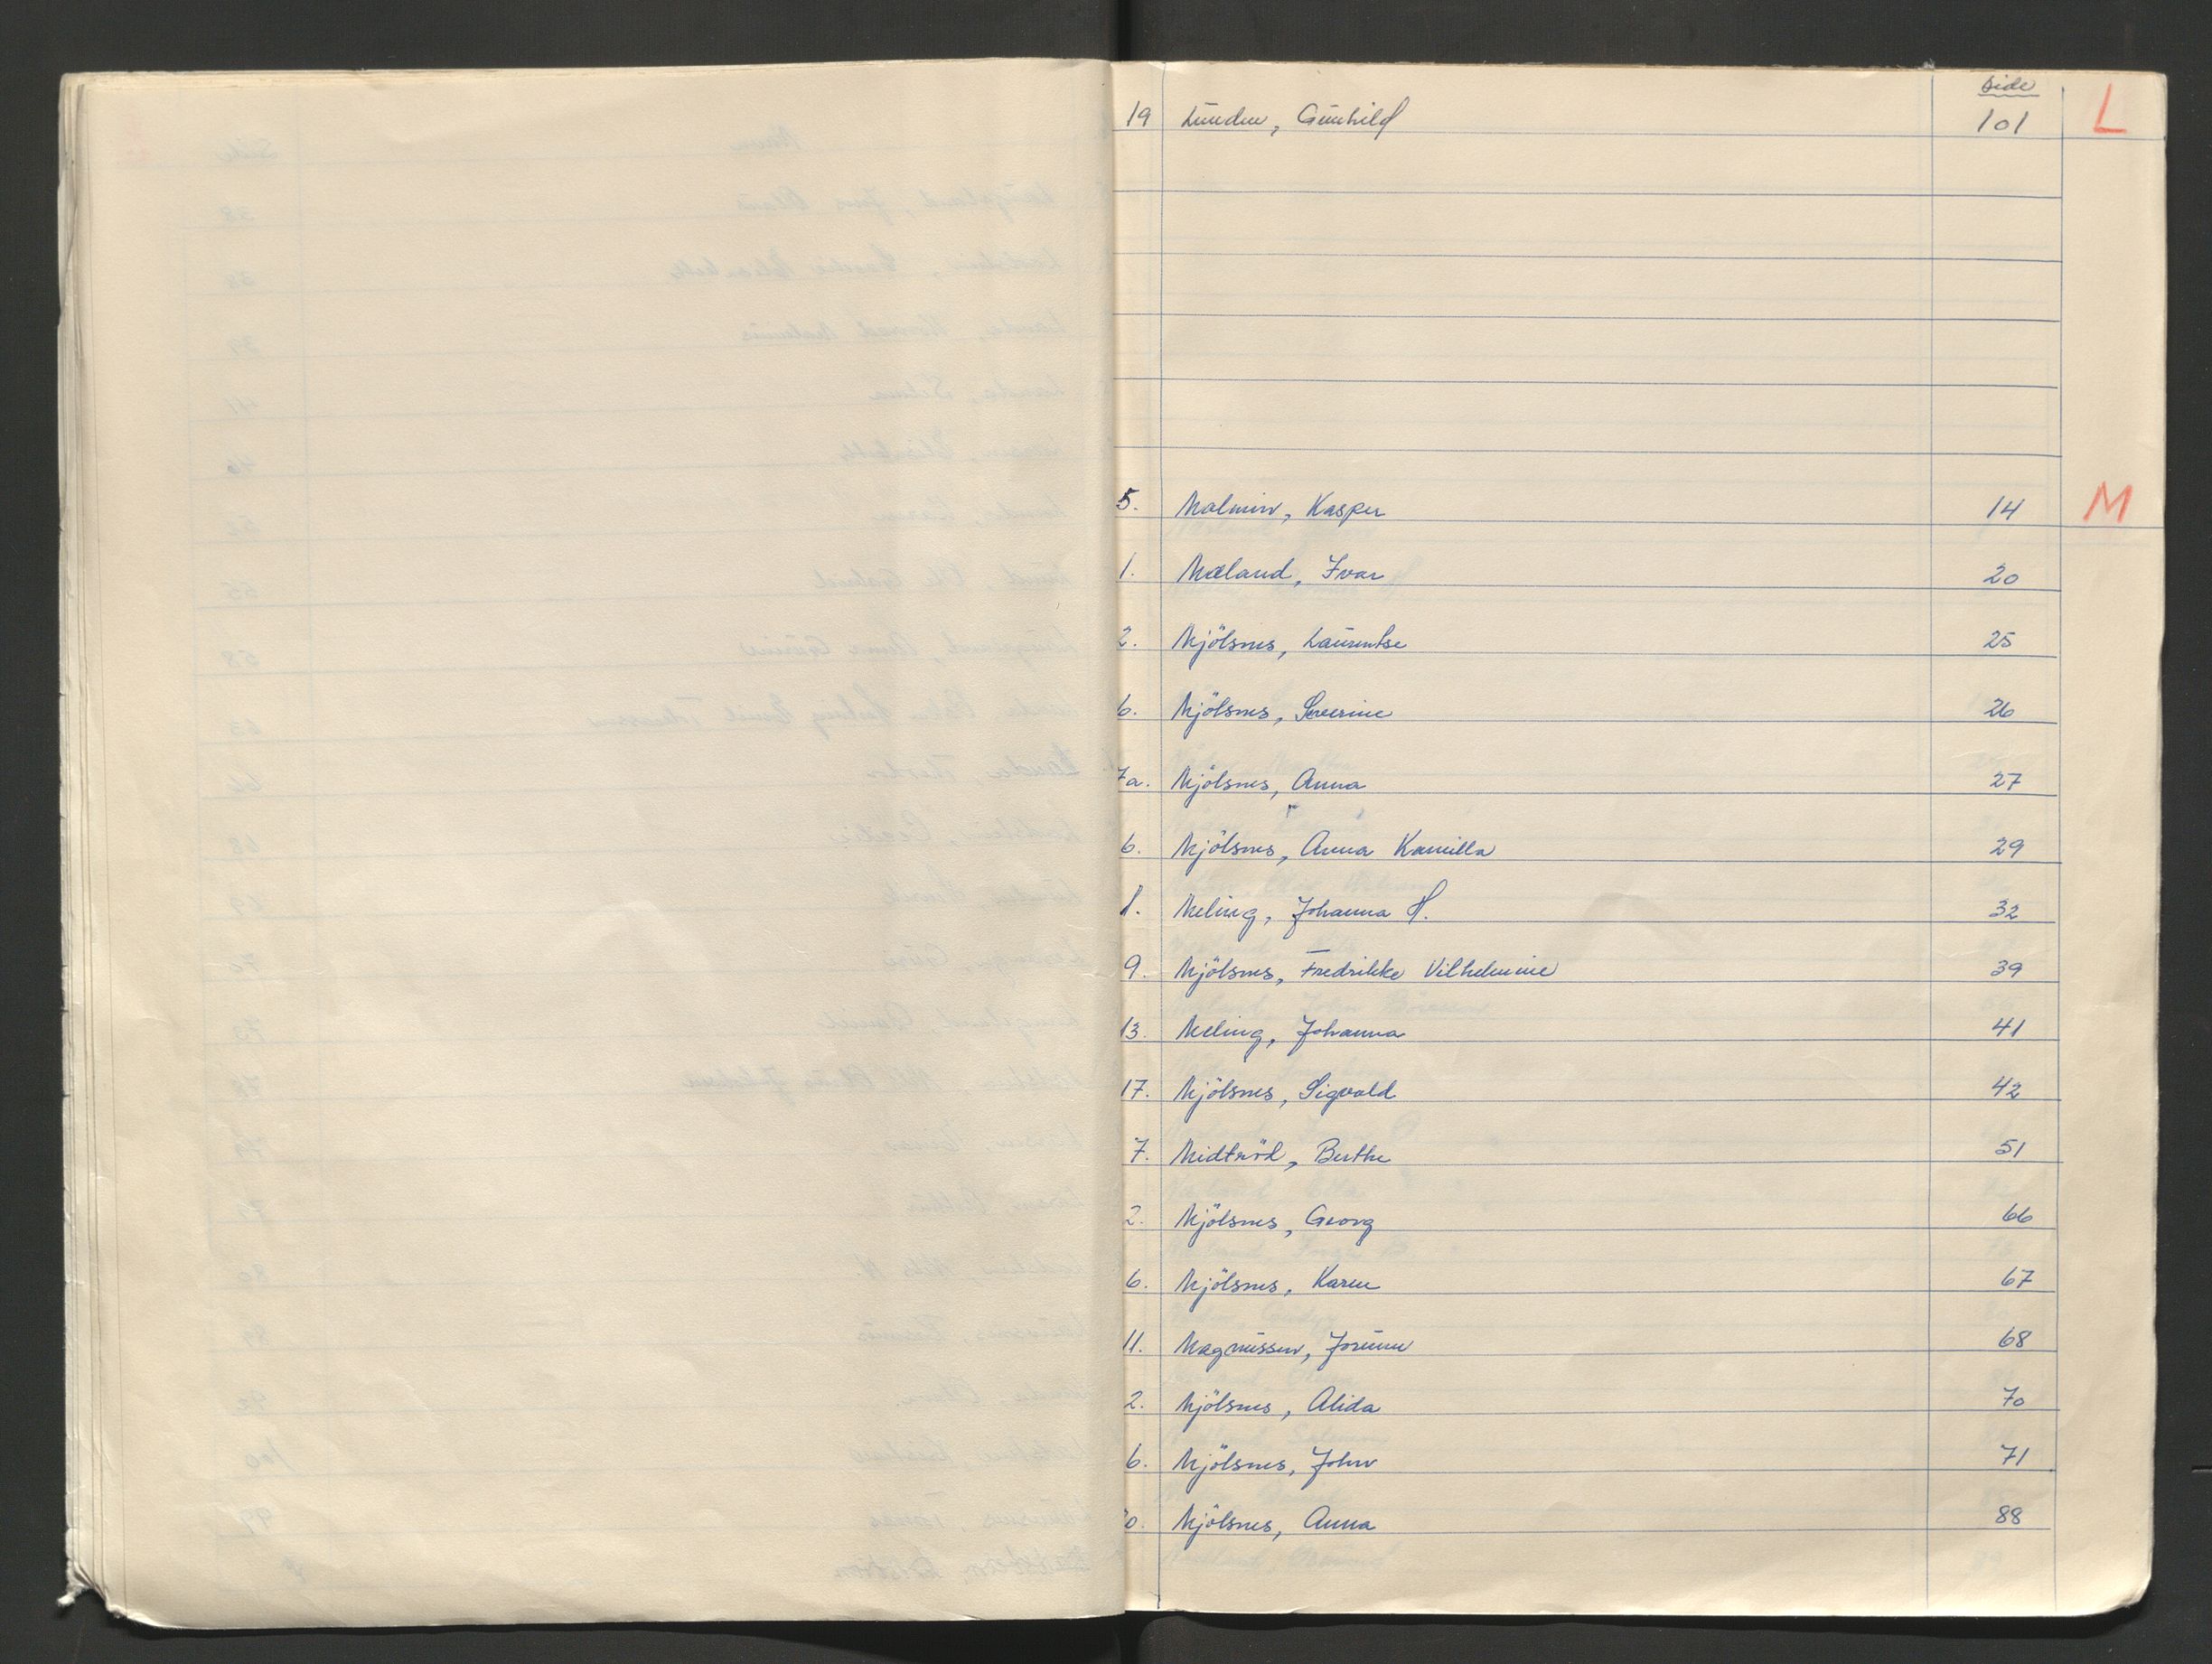 side
19 Lunden, Gunhild 101 L
5. Malmin, Kasper 14 M
1. Mæland, Ivar 20
2. Mjölsnes, Laurentse 25
6. Mjölsnes, Severine 26
7a. Mjölsnes, Anna 27
6. Mjölsnes, Anna Kamilla 29
1. Meling, Johanna H. 32
9. Mjölsnes, Fredrikke Vilhelmine 39
13. Meling, Johanna 41
17. Mjölsnes, Sigvald 42
7. Midtröd, Berthe 51
2. Mjölsnes, Georg 66
6. Mjölsnes, Karen 67
11. Magnussen, Jorunn 68
2. Mjölsnes, Alida 70
6. Mjölsnes, John 71
Mjölsnes, Anna 88